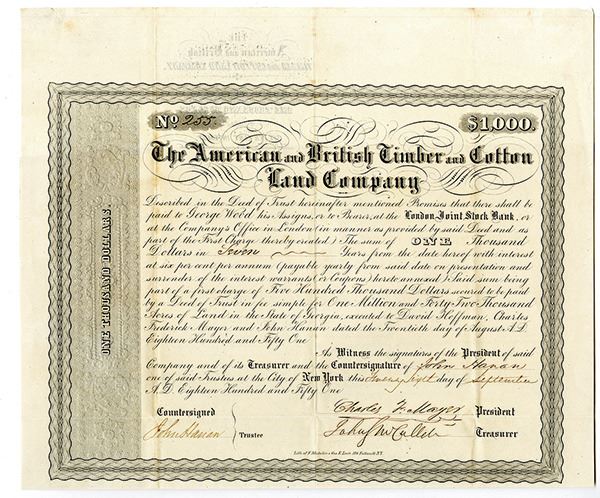 No 255.
$1,000.
The American and British Timber and Cotton
Land Company
Described in the Deed of Trust hereinafter mentioned Promises that there shall be
paid to George Wood his Assigns, or to Bearer, at the London Joint Stock Bank, or
at the Company's Office in London (in manner as provided by said Deed and as
part of the First Charge thereby created) The sum of ONE Thousand
Dollars in Seven Years from the date hereof with interest
at six per cent per annum (payable yearly from said date on presentation and
surrender of the interest warrants or Coupons thereto annexed) Said sum being
part of a first charge of Five Hundred Thousand Dollars secured to be paid
by a Deed of Trust in fee simple for One Million and Forty Two Thousand
Acres of Land in the State of Georgia, executed to David Hoffman, Charles
Frederick Mayer and John Hanan dated the Twentieth day of August A.D.
Eighteen Hundred and Fifty One
As Witness the signatures of the President of said
Company and of its Treasurer and the Countersignature of John Hanan
one of said Trustees at the City of New York this day of September
A.D. Eighteen Hundred and Fifty One
Countersigned
John Hanan
Trustee
Charles F. Mayer President
Treasurer
ONE THOUSAND DOLLARS.